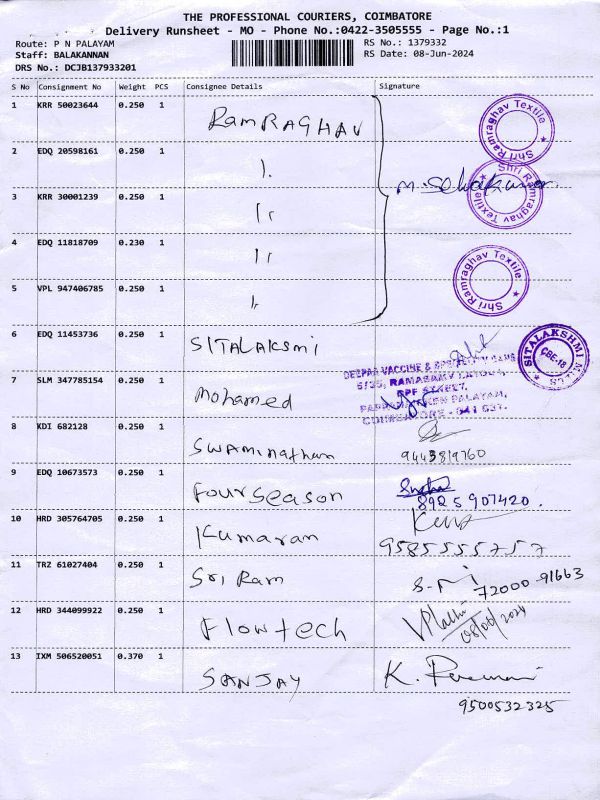 THE PROFESSIONAL COURIERS, COIMBATORE
Delivery Runsheet - MO - Phone No.:0422-3505555 - Page No.:1
Route: P N PALAYAM
RS No.: 1379332
Staff: BALAKANNAN
RS Date: 08-Jun-2024
DRS No.: DCJB137933201
S No Consignment No Weight PCS Consignee Details Signature
1 KRR 50023644 0.250 1 RamRAGHAV
Shri Ramraghav Textile
2 EDQ 20598161 0.250 1
Shri Ramraghav Textile
3 KRR 30001239 0.250 1
4 EDQ 11818709 0.230 1
Shri Ramraghav Textile
5 VPL 947406785 0.250 1
6 EDQ 11453736 0.250 1 SITALAKSMI
SITALAKSHMI MILLS
CBE-18
DEEPAM VACCINE & SPECIALITY
7 SLM 347785154 0.250 1 mohamed
6/35, RAMASAMY
STREET,
PALAYAM,
COIMBATORE - 641 037.
8 KDI 682128 0.250 1 Swaminathan
9443819760
9 EDQ 10673573 0.250 1 Fourseason
8925907420.
10 HRD 305764705 0.250 1 Kumaran
9585555757
11 TRZ 61027404 0.250 1 Sri Ram
72000-91663
12 HRD 344099922 0.250 1 Flowtech
08/06/2024
13 IXM 506520051 0.370 1 SANJAY
9500532325